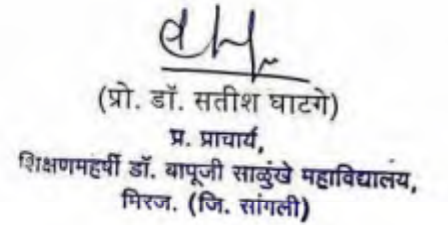 (प्रो. डॉ. सतीश घाटगे)
प्र. प्राचार्य,
शिक्षणमहर्षी डॉ. बापूजी साळुंखे महाविद्यालय,
मिरज. (जि. सांगली)